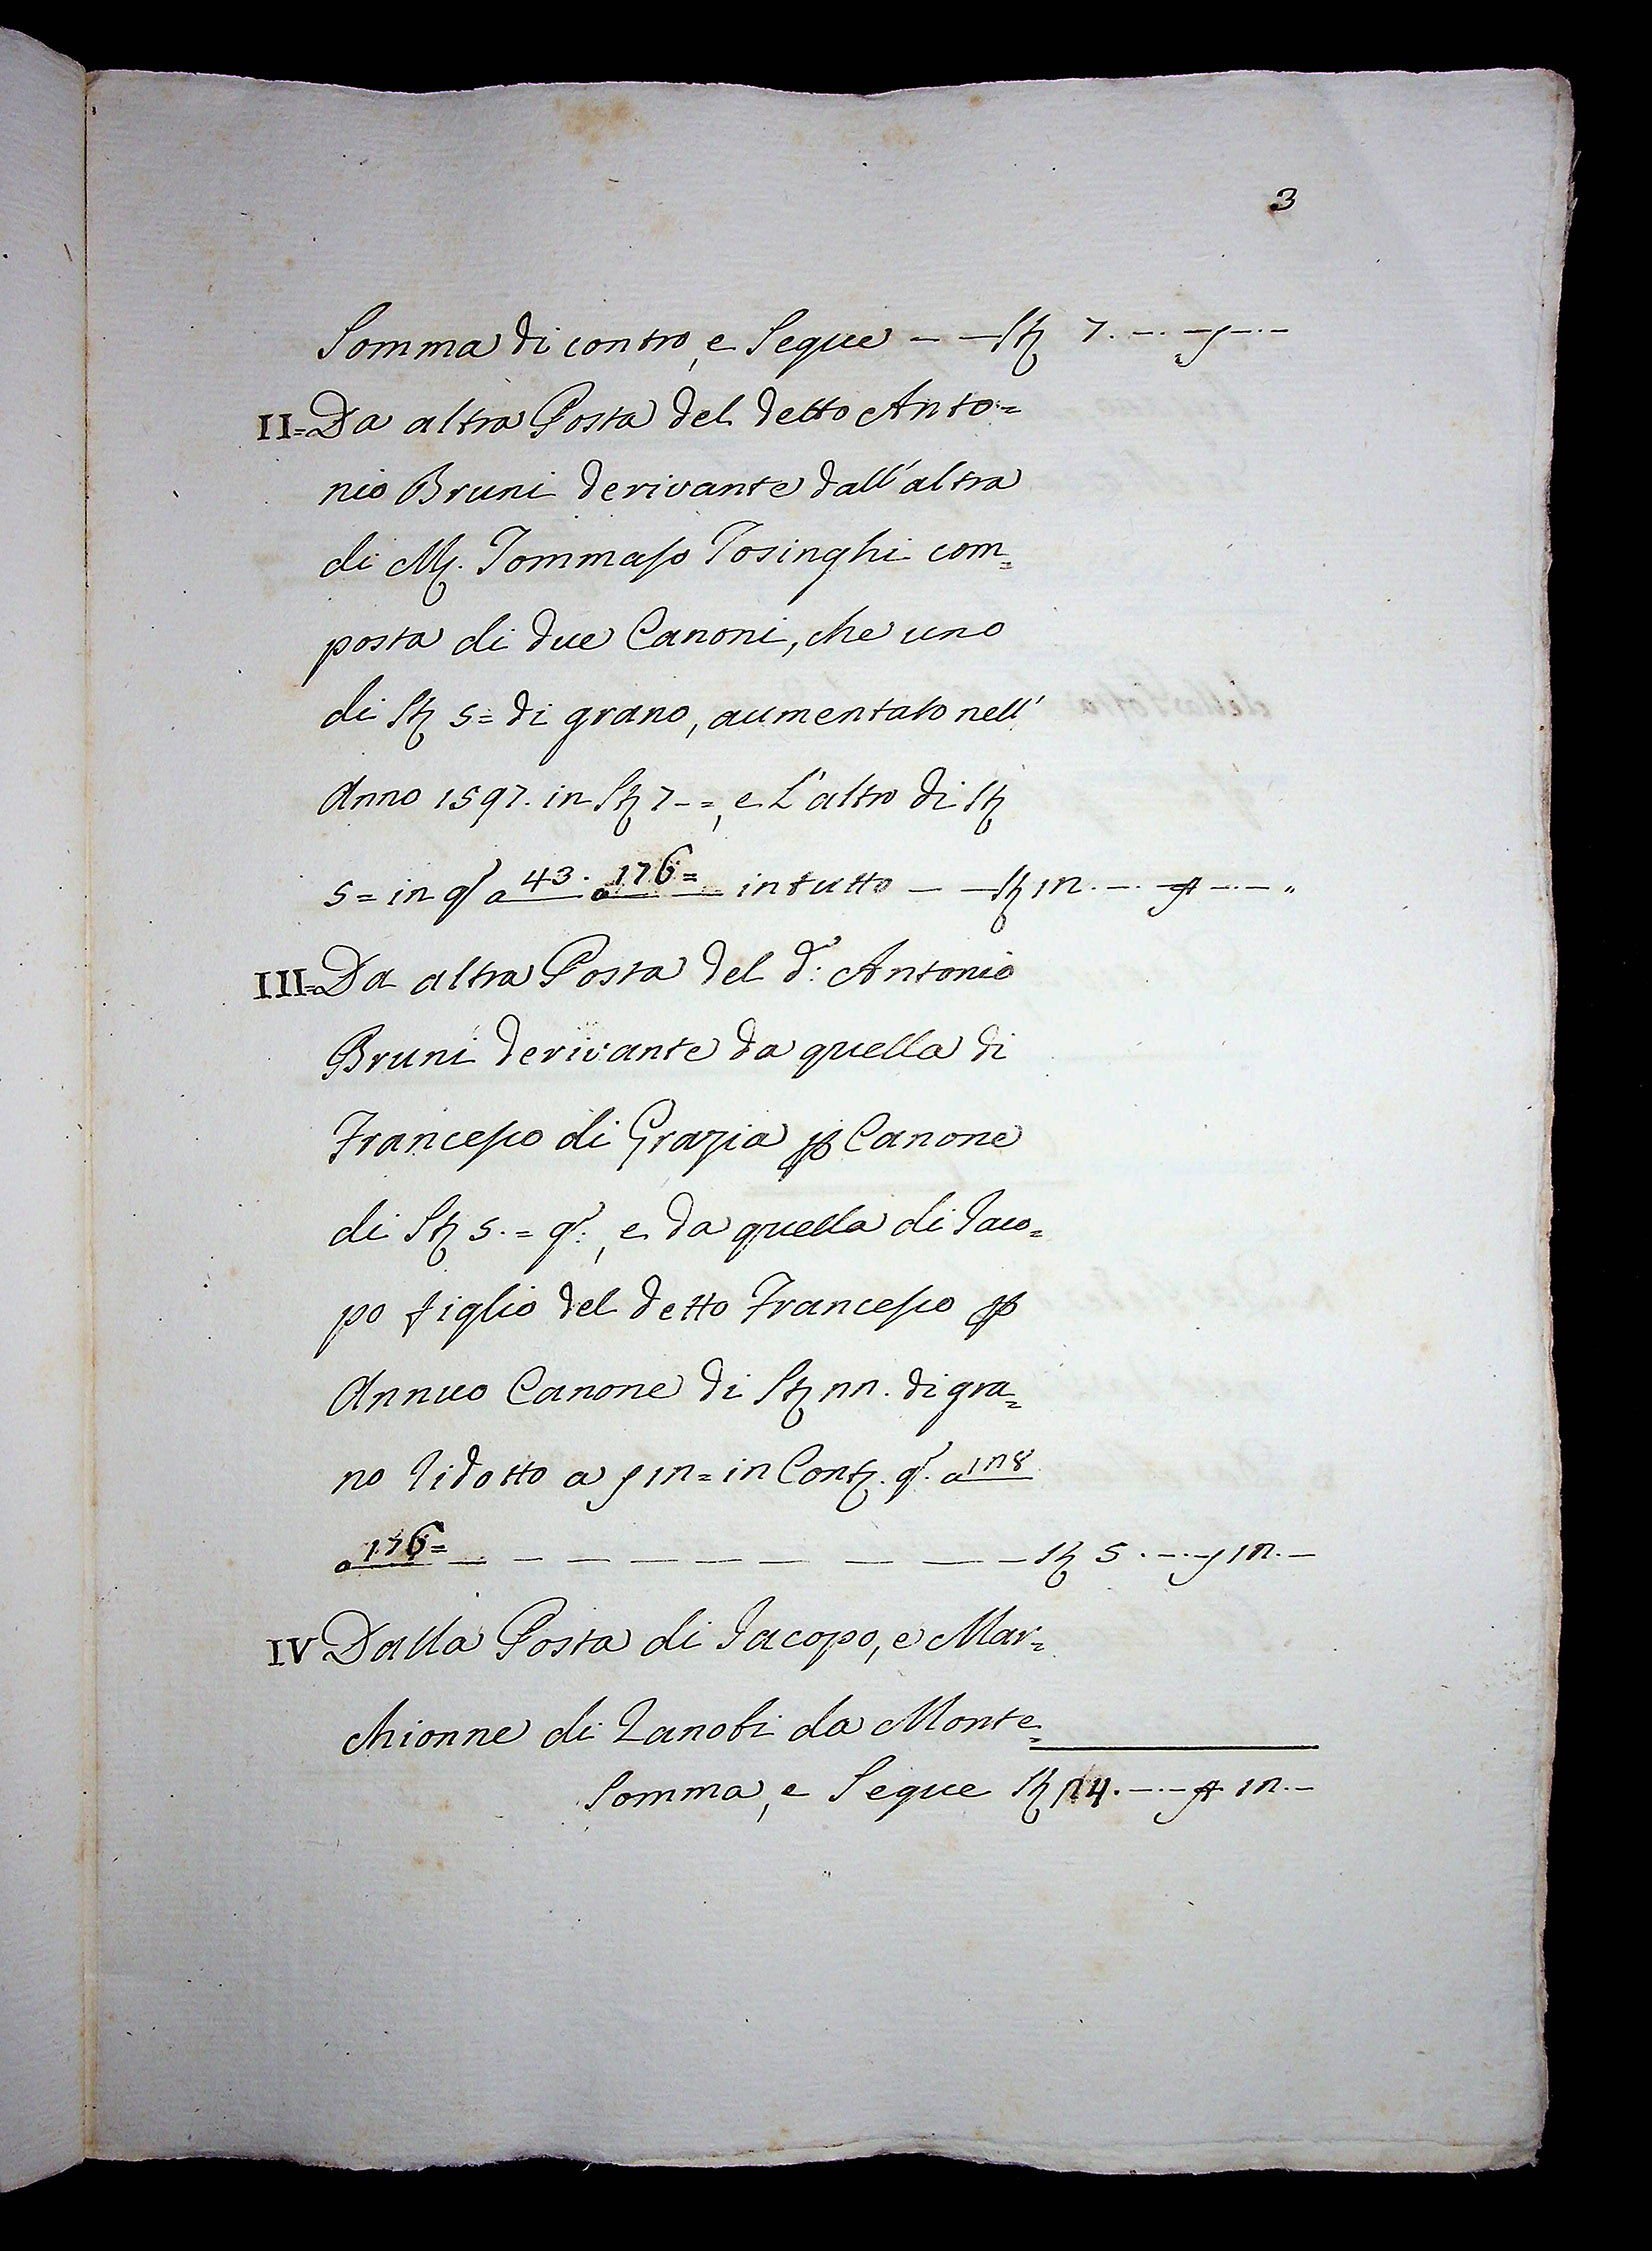 3
Somma di contro, e Segue - - Stˢ 7. - . - ƒ - . -
II = Da altra Posta del detto Anto=
nio Bruni derivante dall'altra
di Mʳ. Tommaso Tosinghi com=
posta di due Canoni, che uno
di Stˢ 5 = di grano, aumentato nell'
Anno 1597. in Stˢ 7 - =, e L'altro di Stˢ
5 = in qᵒ a 43. a 176 = in tutto - - Stˢ 12. - . - ƒ - . - "
III = Da altra Posta del dᵒ: Antonio
Bruni derivante da quella di
Francesco di Grazia ꝑ Canone
di Stˢ 5. = qᵒ:, e da quella di Jaco=
po figlio del detto Francesco ꝑ
Annuo Canone di Stˢ 22. di gra=
no ridotto a ƒ 12 = in Contˢ. qᵒ. a 128
a 176 = - - - - - - - - - Stˢ 5. - . - ƒ 12. -
IV Dalla Posta di Jacopo, e Mar=
chionne di Zanobi da Monte=
Somma, e Segue Stˢ 24. - . - ƒ 12. -